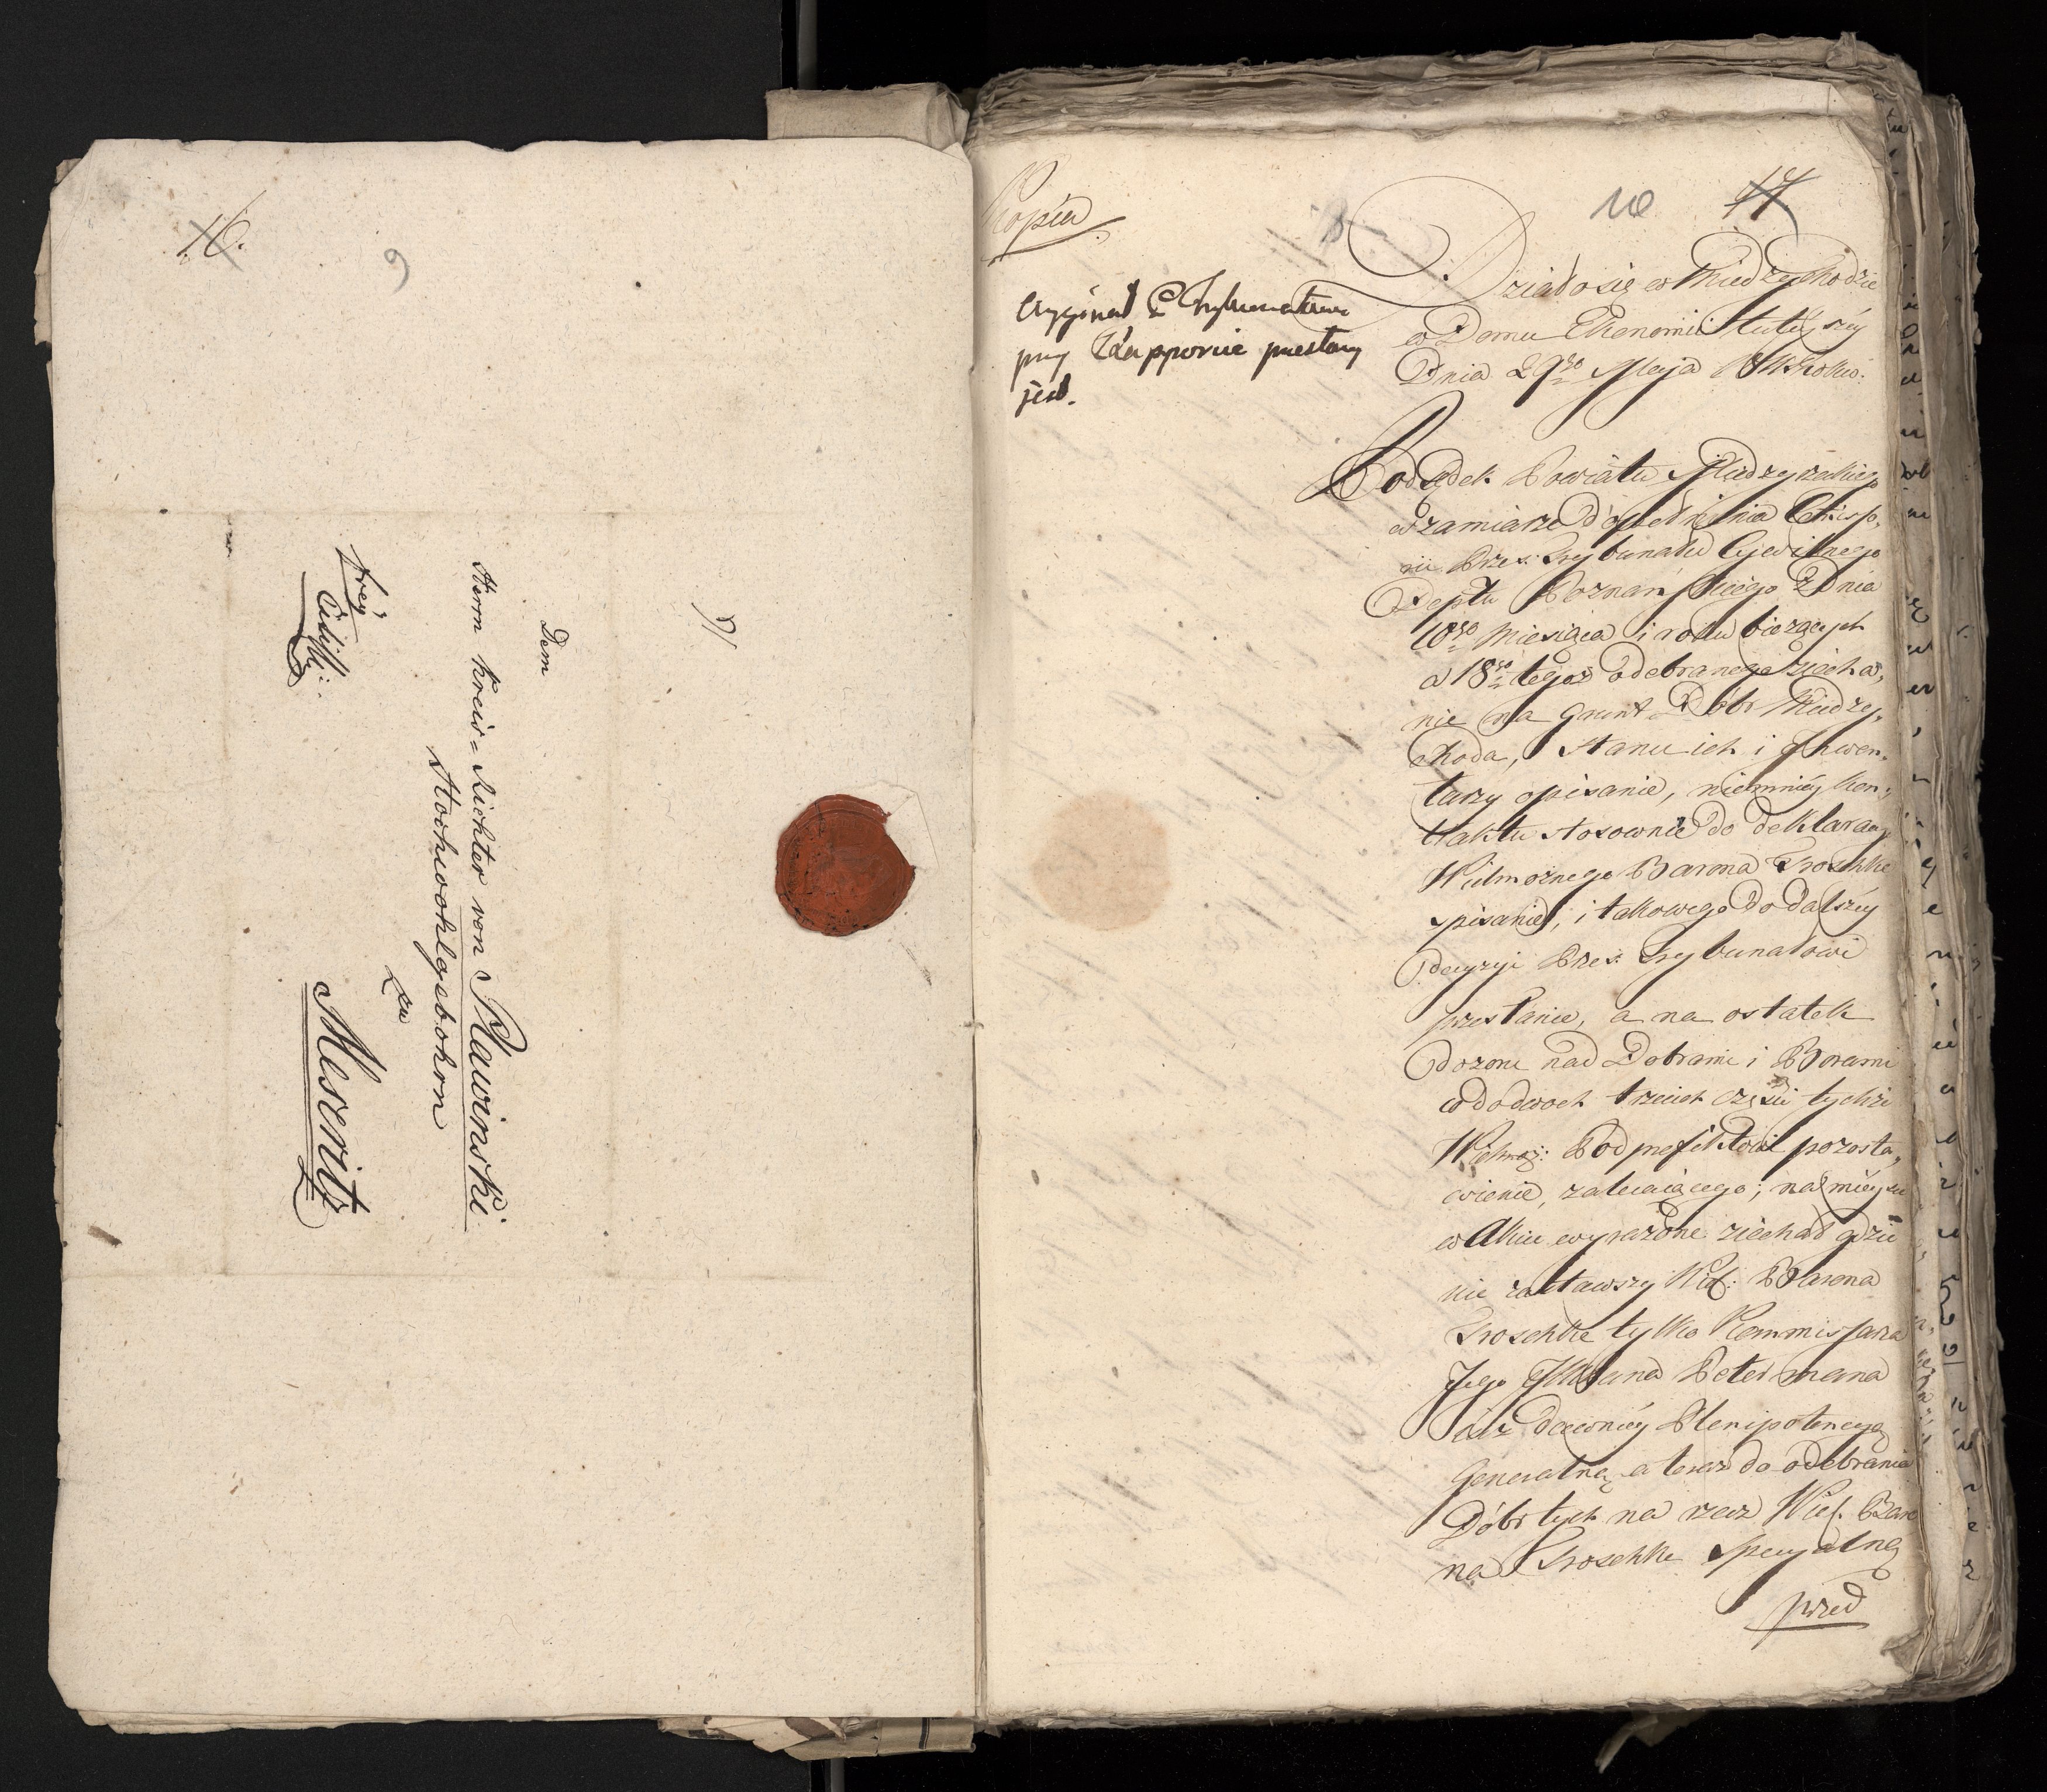 16.
9
Dem
Herrn Kreis=Richter von Rławinski
Hochwohlgebohrn
zu
Meseritz
frey
Kopia
10 17
Oryginał Trybunałowi
przy Rapporcie przesłany
jest.
Działo się w Międzychodzie
w Domu Ekonomii tutejszéy
Dnia 29go Maja
Podsędek Powiatu Międzyrzeckiego
w zamiarze dopełnienia Comisso,
rii Prześ: Trybunału Cywilnego
Deptu Poznańskiego z Dnia
10go Miesiąca i roku bieżących
a 18go tegoż odebranego ziecha,
nie na grunt Dóbr Między,
choda, stanu ich i Inwen,
tarzy opisanie, niemniéy Kon,
traktu stosownie do deklaracyi
Wielmożnego Barona Troschke
spisanie, i takowego do dalszéy
decyzyi Prześ: Trybunałowi
przesłanie, a na ostatek
dozoru nad Dobrami i Borami
w dodwoch trzecich części tychże
Wielmoż: Podprefektowi pozosta,
wienie, zalecaiącego; na mieysce
w Akcie wyrażone ziechał gdzie
nie zastawszy Wiel: Barona
Troschke tylko Kommissarza
Jego Petermana
iuż dawniéy Plenipotencyą
Generalną a teraz do odebrania
Dóbr tych na rzecz Wiel. Baro
na Troschke specyalną
przed